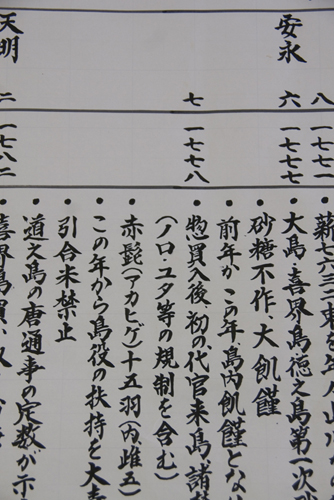 八 一七七一
安永 六 一七七七 ・大島・喜界島・徳之島第一次
・砂糖不作、大飢饉
・前年か この年、島内飢饉とな
七 一七七八 ・惣買入後初の代官来島、諸
(ノロ・ユタ等の規制を含む)
・赤髭(アカヒゲ)十五羽(内雌五)
・この年から島役の扶持を大
・引合米禁止
天明 二 一七八二 ・道之島の唐通事の定数が示
・喜界島買い